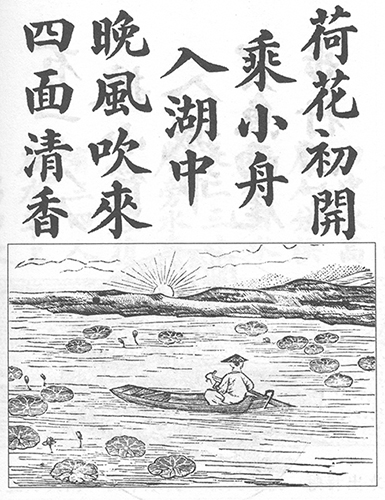 荷花初開
乘小舟
入湖中
晚風吹來
四面清香